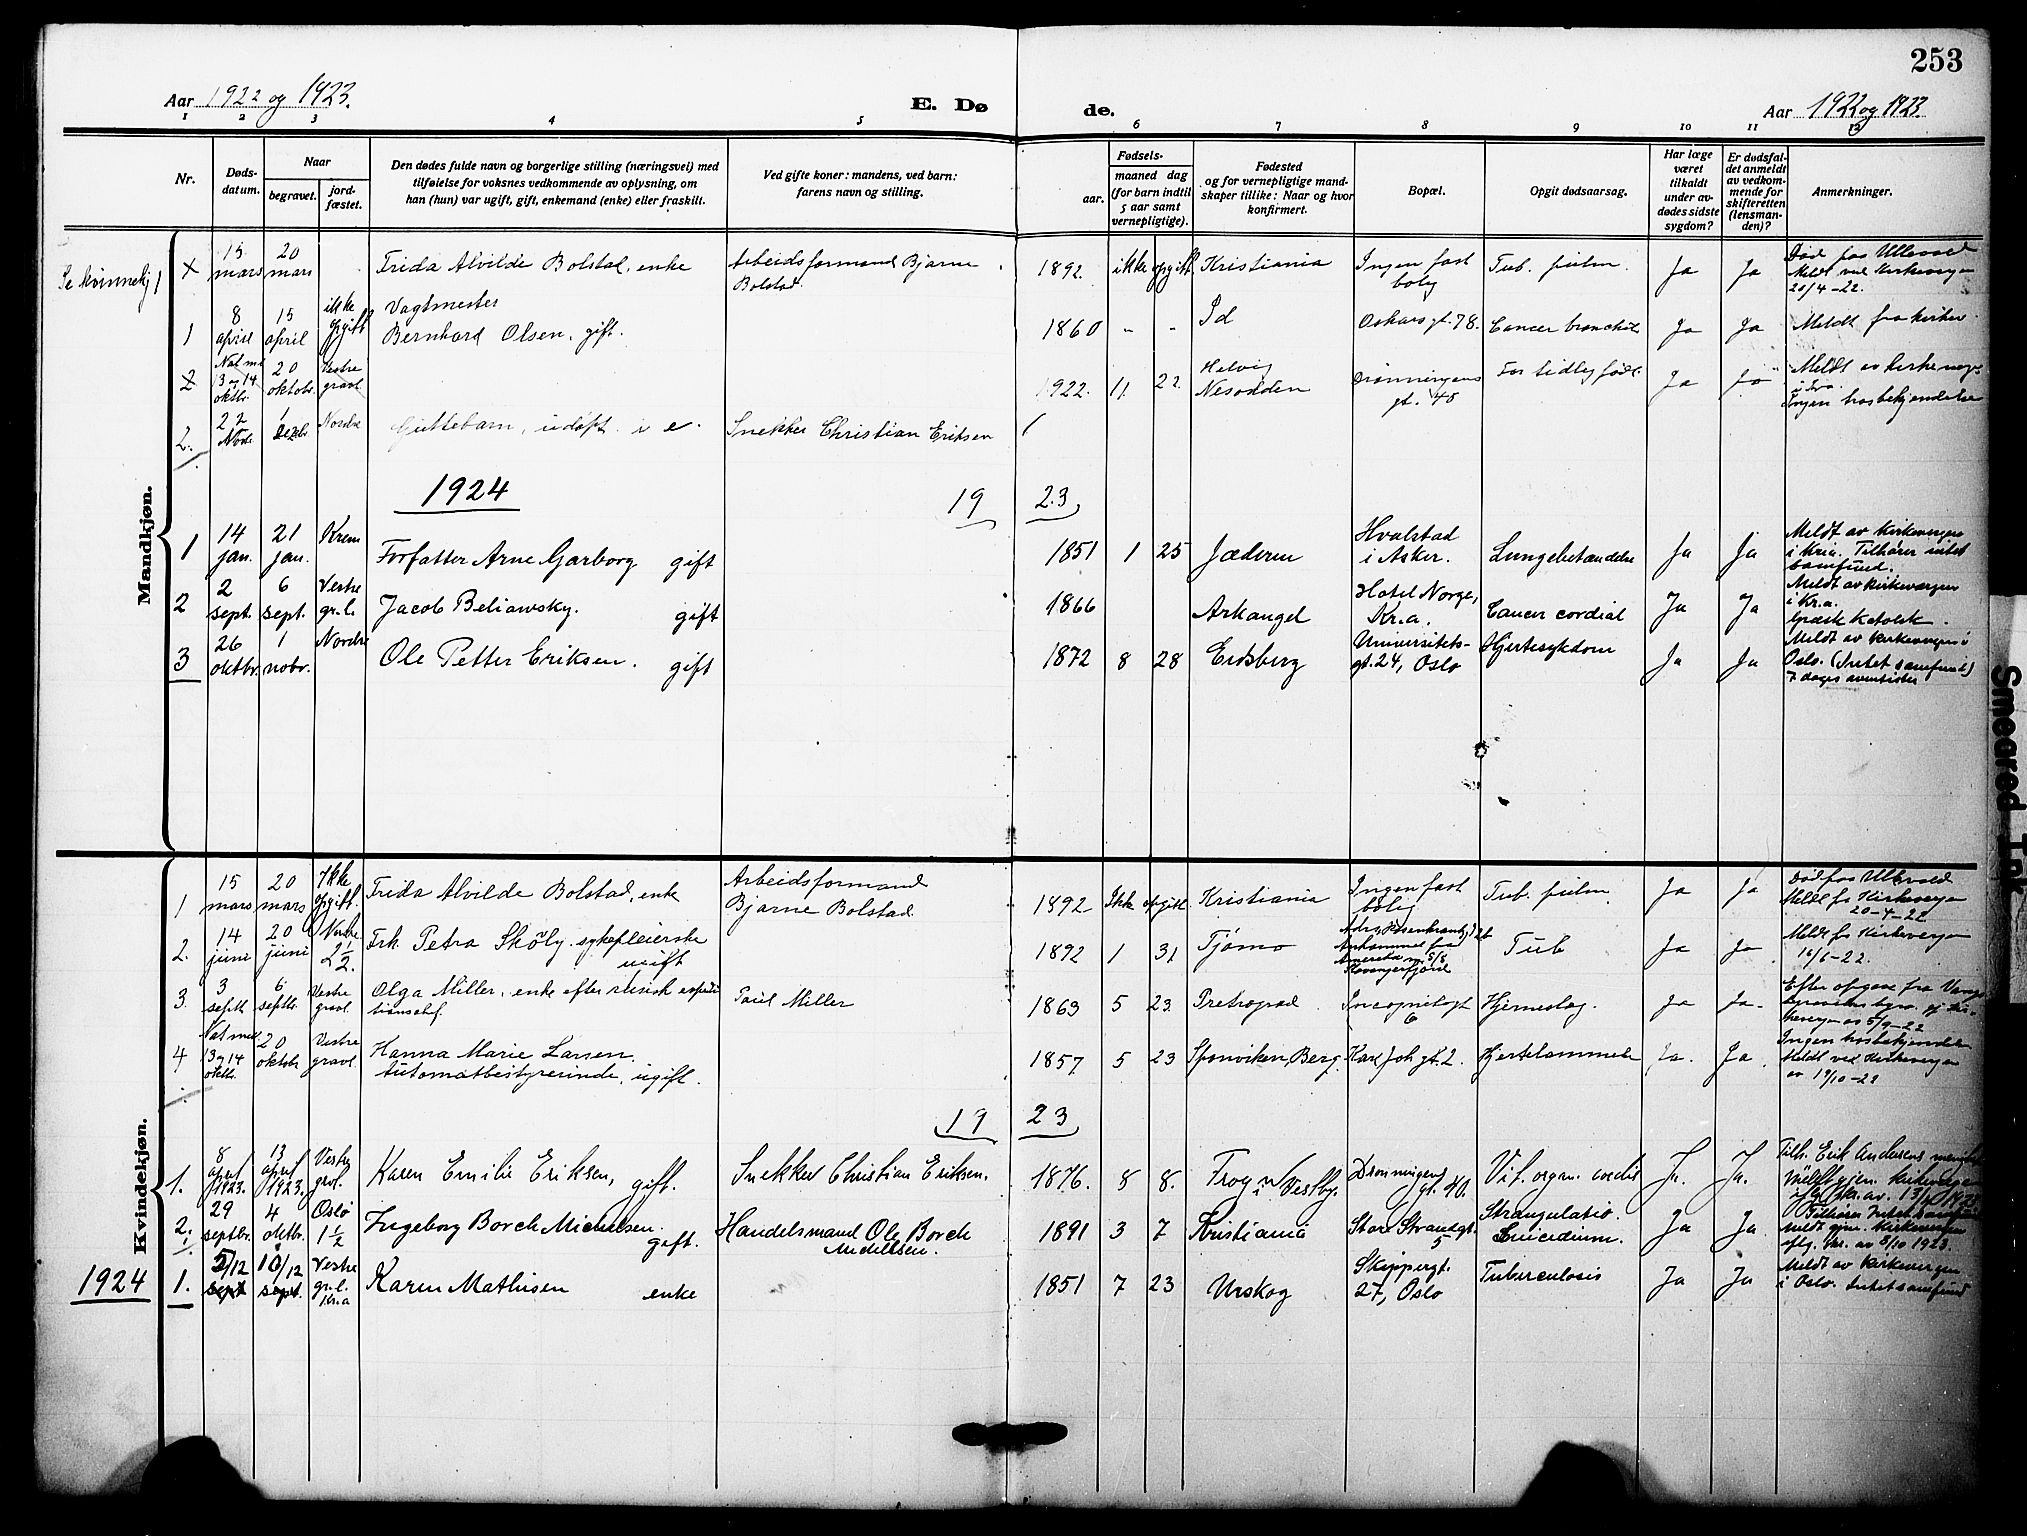 253
Aar 1922 og 1923.
E. Dø de.
Aar 1922 og 1923.
1 2 3 4 5 6 7 8 9 10 11 12
Nr.
Døds-
datum.
Naar
begravet.
jord-
fæstet.
Den dødes fulde navn og borgerlige stilling (næringsvei) med
tilføielse for voksnes vedkommende av oplysning, om
han (hun) var ugift, gift, enkemand (enke) eller fraskilt.
Ved gifte koner: mandens, ved barn:
farens navn og stilling.
Fødsels-
aar.
maaned dag
(for barn indtil
5 aar samt
vernepligtige).
Fødested
og for vernepligtige mand-
skaper tillike: Naar og hvor
konfirmert.
Bopæl.
Opgit dødsaarsag.
Har læge
været
tilkaldt
under av-
dødes sidste
sygdom?
Er dødsfal-
det anmeldt
av vedkom-
mende for
skifteretten
(lensman-
den)?
Anmerkninger.
Mandkjøn.
Se kvinnekj!
15 mars 20 mars Frida Alvilde Bolstad, enke Arbeidsformand Bjarne Bolstad. 1892. ikke opgift Kristiania Ingen fast bolig Tub. pulm. Ja Ja Død paa Ullevaal Meldt ved Kirkevergen 20/4-22.
1 8 april 15 april ikke opgift Vagtmester Bernhard Olsen, gift. 1860 - - Id Oskarsgt. 78. Cancer bronchit Ja Ja Meldt fra kirkev.
2 Nat m. 13 og 14 oktbr. 20 oktobr. Vestre gravl. 1922. 11 22. Helvig Nesodden Dronningens gt. 40 For tidlig født. Ja Ja Meldt av kirkeverge i Kra. Ingen trosbekjendelse
2. 22 Novbr. 1 Dezbr. Nordre Guttebarn, udøpt. i e. Snekker Christian Eriksen
1924 19 23
1 14 jan. 21 jan. Krem Forfatter Arne Garborg gift 1851 1 25 Jæderen Hvalstad i Asker. Lungebetændelse Ja Ja Meldt av Kirkevergen i Kria. Tilhører intet samfund.
2 2 sept. 6 sept. Vestre gr.l. Jacob Beliawsky. gift 1866 Arkangel Hotel Norge, Kr.a. Cancer cordial Ja Ja Meldt av kirkevergen i Kr.a. Græsk Katolsk.
3 26 oktbr. 1 nobr. Nordre Ole Petter Eriksen. gift 1872 8 28 Eidsberg Universitets-gt. 24, Oslo Hjertesykdom Ja Ja Meldt av kirkevergen i Oslo. (Intet samfund) 7 dages aventister
Kvindekjøn.
1 15 mars 20 mars Ikke opgift. Frida Alvilde Bolstad, enke Arbeidsformand Bjarne Bolstad 1892 Ikke opgitt Kristiania Ingen fast bolig Tub. pulm. Ja Ja Død paa Ullevaal Meldt fr Kirkevergen 20-4-22
2. 14 juni 20 juni Frk. Petra Sköly. sykepleierske ugift 1892 1 31 Tjømø Ankommet fra Amerika m. 5/6 Stavangerfjord Tub Ja Ja Meldt fr Kirkevergen 16/6-22.
3 3 septbr. 6 septbr. Vestre gravl. Olga Miller, enke efter russisk expeditionschef. Paul Miller 1863 5 23. Petrograd Incognitogt 6 Hjerneslag. Ja Ja. Efter opgave fra kirkevergen av 5/9-22
4 Nat mel. 13 og 14 oktbr. 20 oktobr Vestre gravl. Hanna Marie Larsen. Automatbestyrerinde, ugift. 1857 5 23 Sponviken, Berg. Karl Joh gt. 2. Hjertelammelse Ja. Ja. Ingen trosbekjendelse Meldt ved Kirkevergen av 19/10-22
19 23
1. 8 april 1923. 13 april 1923. Vestre grvl. Karen Emilie Eriksen, gift. Snekker Christian Eriksen. 1876. 8 8. Frogn i Vestby. Dronningens gt. 40. Vit. organ. cordis Ja. Ja. Tilh. Erik Andersens menighet Meldt gjen. kirkevergen
2. 29 septbr. 4 oktbr. Oslo 1 1/2 Ingeborg Borch Michelsen. gift. Handelsmand Ole Borch Michelsen. 1891 3 7 Kristiania Store Strandgt. 5 Strangulatio. Suicidium. Ja Ja Tilhører Intet samfund Meldt gjen. Kirkevergen
1924 1. 5/12 sept 10/12 sept. Vestre gr.l. Kr.a Karen Mathisen enke 1851 7 23 Urskog Skippergt. 27, Oslo Tuberculosis Ja Ja Meldt av Kirkevergen i Oslo. Intet samfund
Smeared Ink